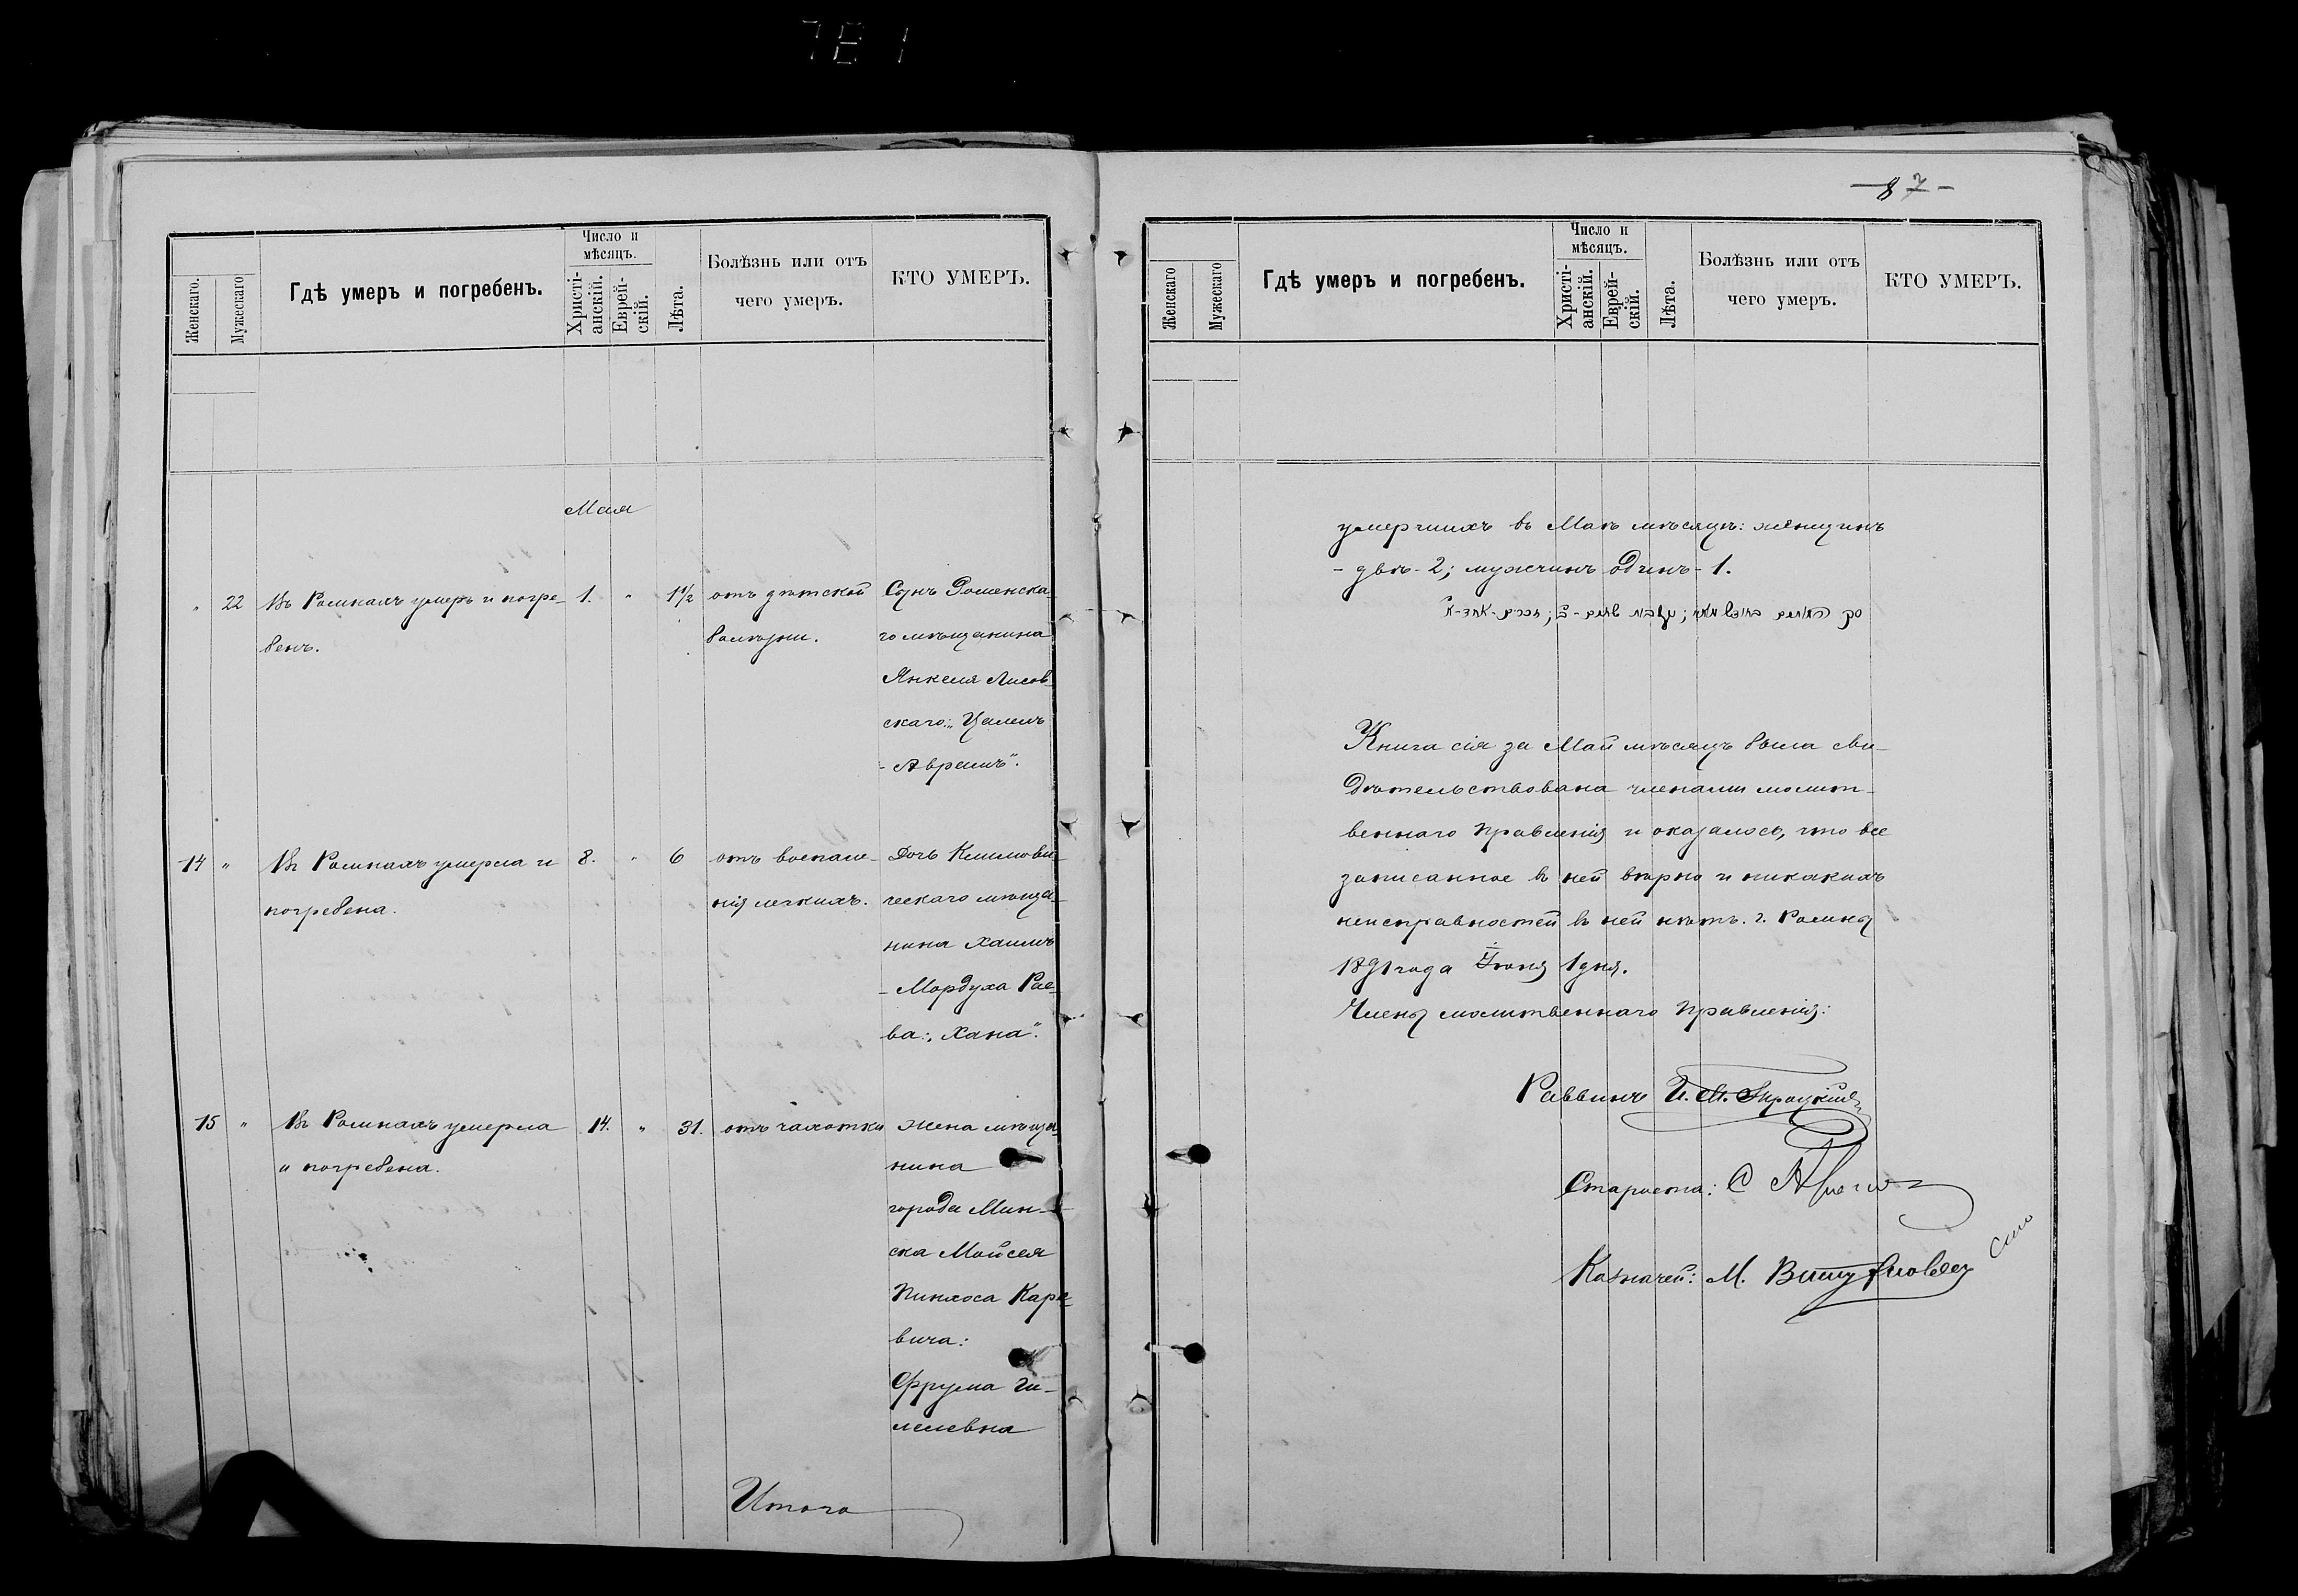 781
Женскаго.
Мужескаго
Гдѣ умеръ и погребенъ.
Число и
мѣсяцъ.
Христі-
анскій.
Еврей-
скій.
Лѣта.
Болѣзнь или отъ
чего умеръ.
КТО УМЕРЪ.
Мая
" 22 Въ Ромнахъ умеръ и погре- 1. " 1½ отъ дѣтской Сынъ Роменска-
бенъ. болѣзни. го мѣщанина
Янкеля Лисов-
скаго: „Цалелъ
- Аврамъ".
14 " Въ Ромнахъ умерла и 8. " 6 отъ воспале- Дочь Климови-
погребена. нія легкихъ. ческаго мѣща-
нина Хаимъ
- Мордуха Рае-
ва: „Хана".
15 " Въ Ромнахъ умерла 14. " 31. отъ чахотки Жена мѣща-
и погребена. нина
города Мин-
ска Мойсея
Пинхоса Карпе-
вича:
Фрума Ги-
лелевна
Итого
87
Женскаго
Мужескаго
Гдѣ умеръ и погребенъ.
Число и
мѣсяцъ.
Христі-
анскій.
Еврей-
скій.
Лѣта.
Болѣзнь или отъ
чего умеръ.
КТО УМЕРЪ.
умершихъ въ Маѣ мѣсяцѣ: женщинъ
- двѣ - 2; мужчинъ одинъ - 1.
Книга сія за Май мѣсяцъ была сви-
дѣтельствована членами молит-
веннаго Правленія и оказалось, что все
записанное въ ней вѣрно и никакихъ
неисправностей въ ней нѣтъ. г. Ромны
1891 года Іюня 1 дня.
Члены молитвеннаго Правленія:
Раввинъ И. М.
Староста: С
Казначей: М.